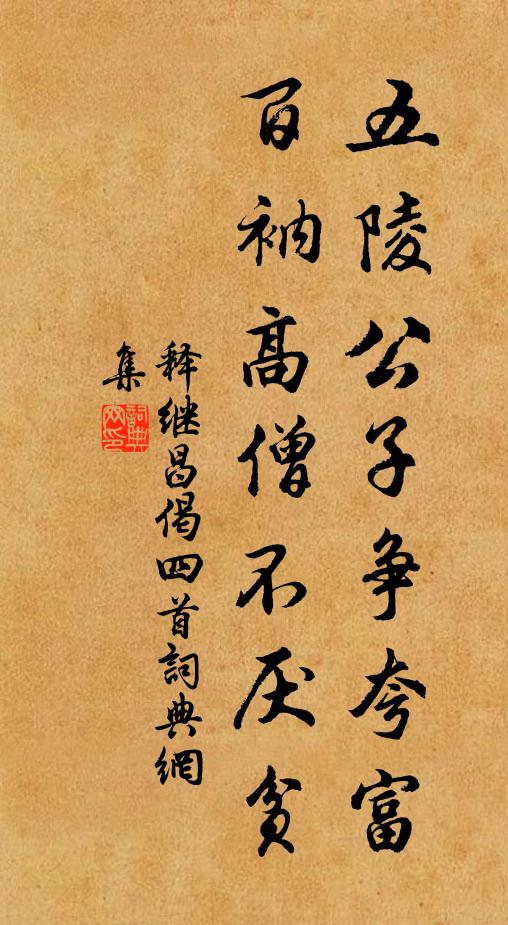 五陵公子争夸富
百衲高僧不厌贫
释继昌偈四首詞典網
集
詞典網印